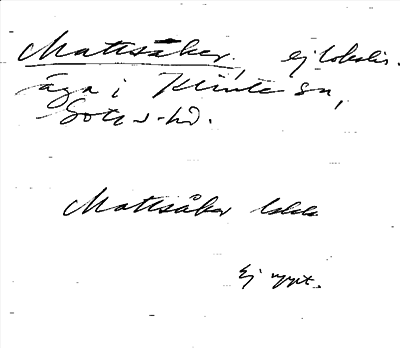 Mattsåker, ej lokalis.
äga i Klinte sn,
Gotl s-hd.
Mattsåker
Ej uppt.